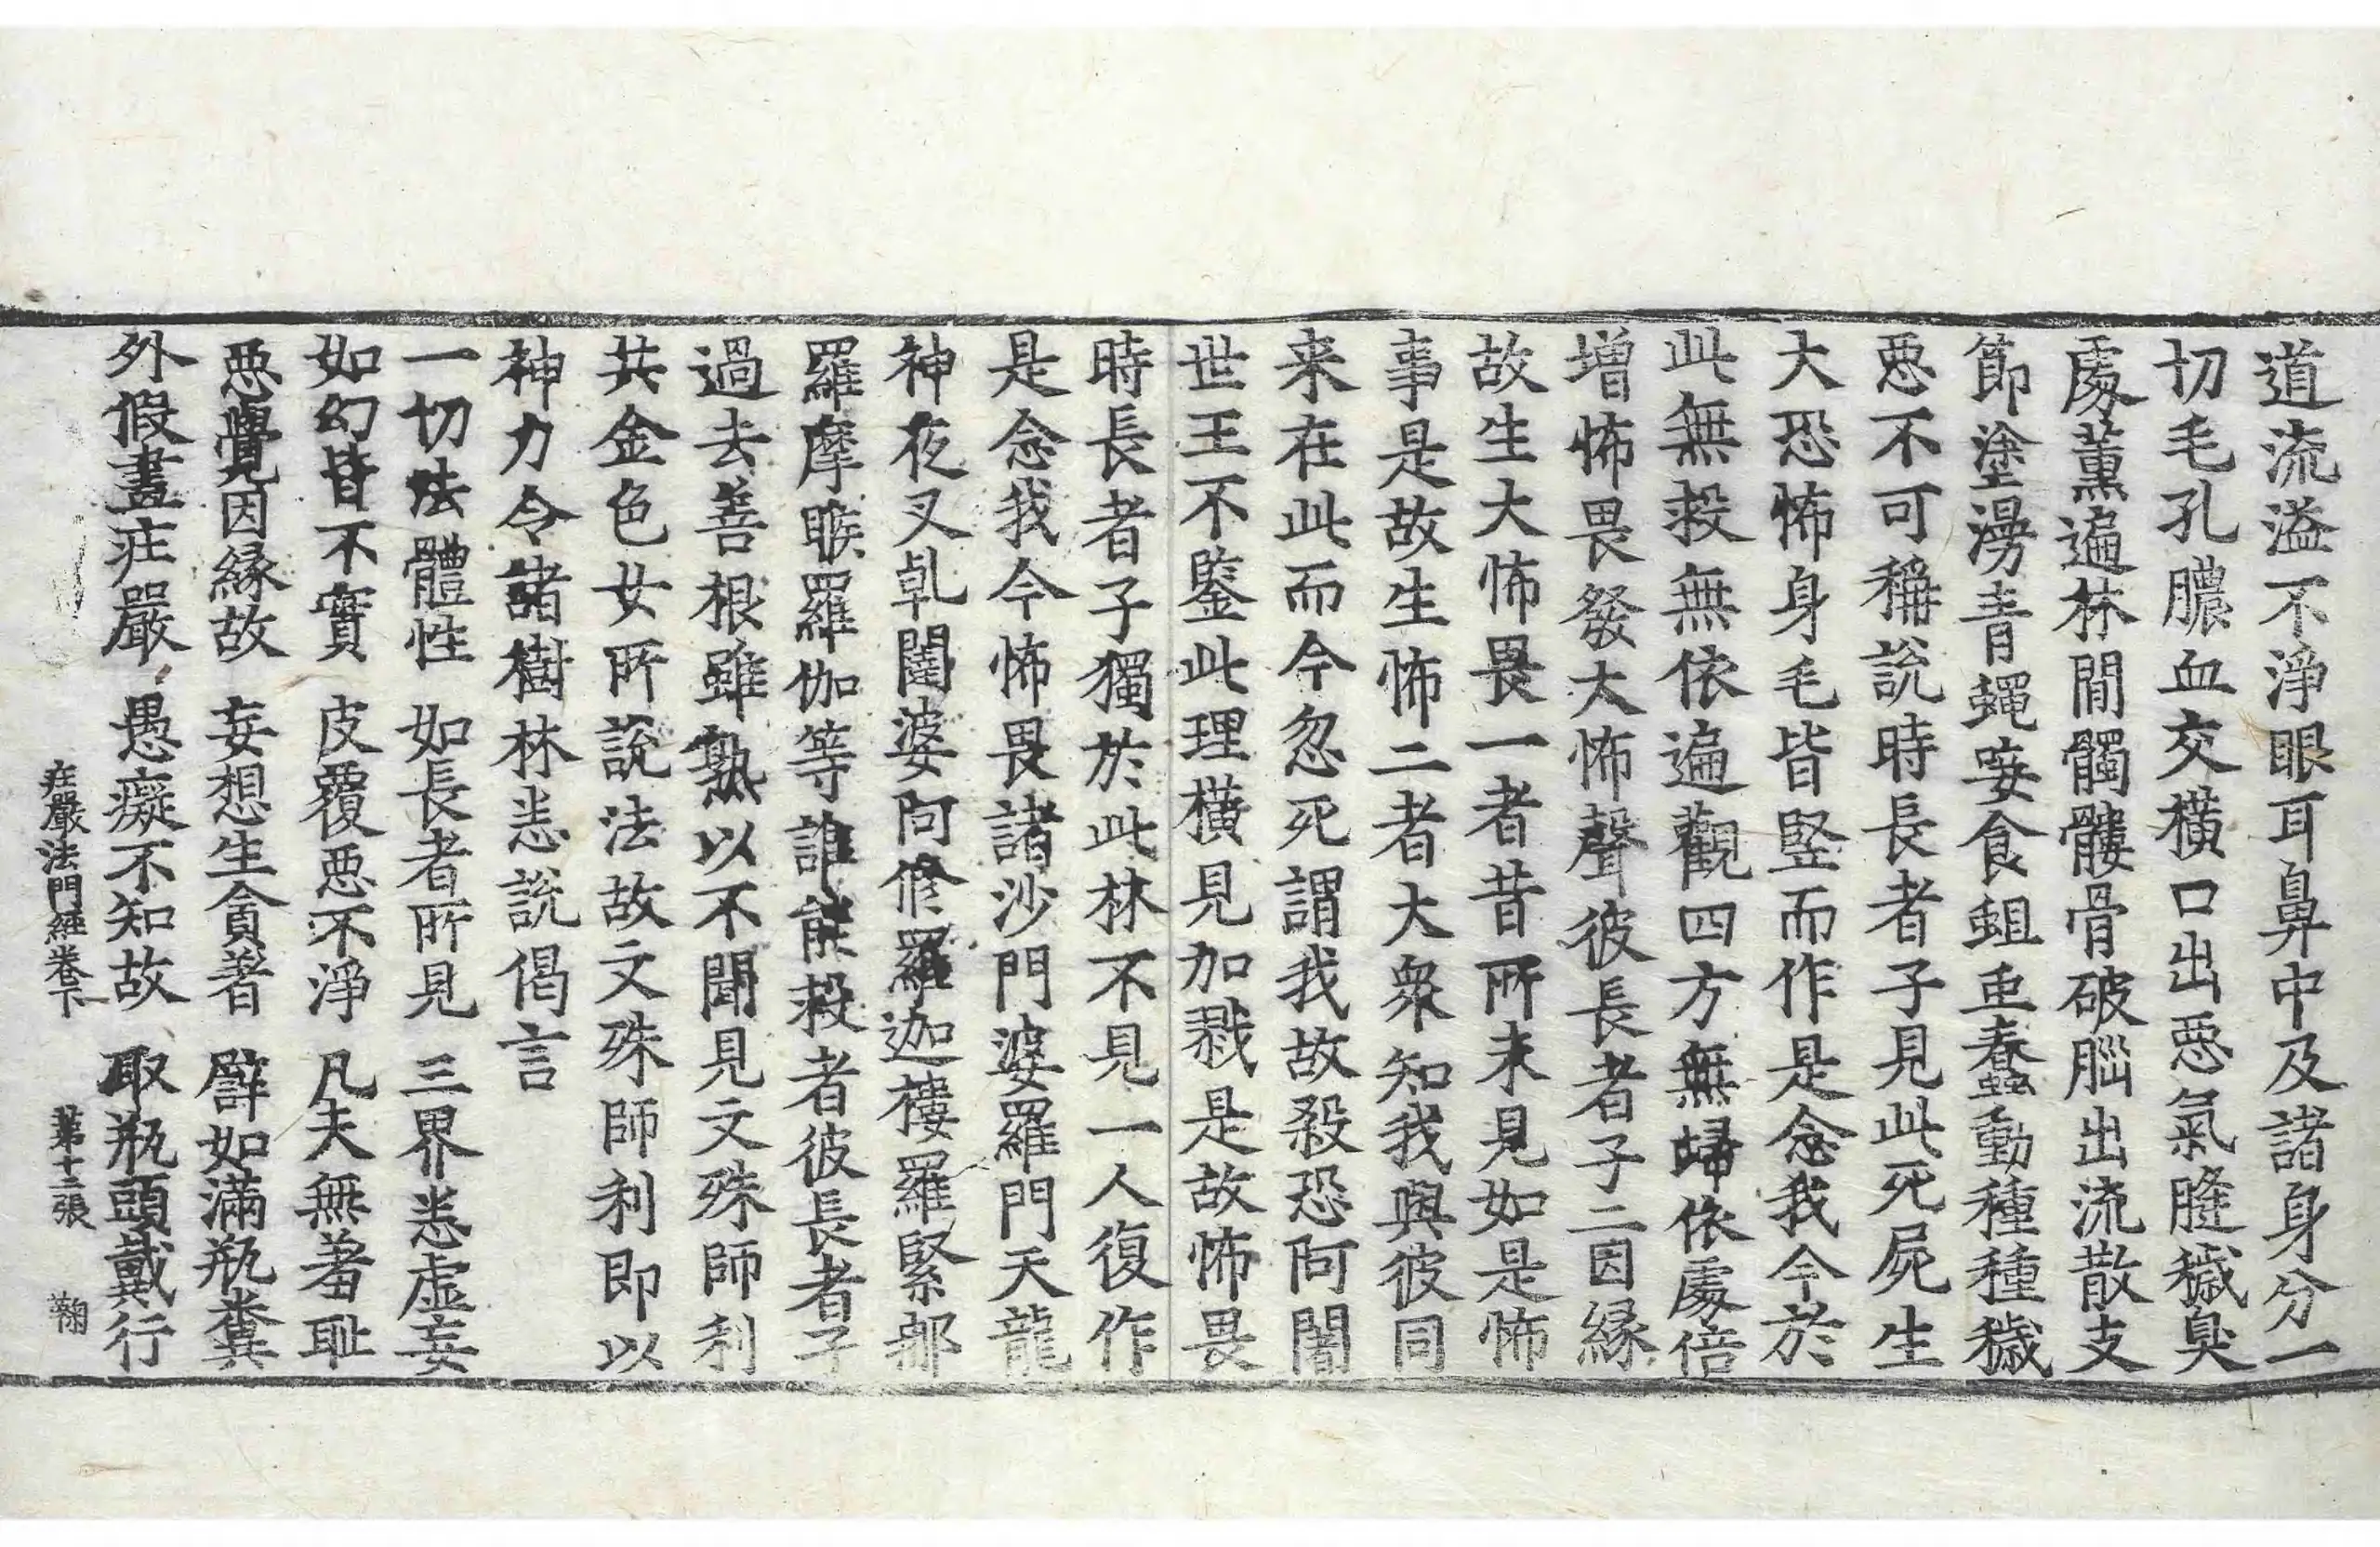 道流溢不淨眼耳鼻中及諸身分一
切毛孔膿血交橫口出惡氣膖穢臭
處薰遍林間髑髏骨破腦出流散支
節塗漫青蠅唼食蛆虫蠢動種種穢
惡不可稱說時長者子見此死屍生
大恐怖身毛皆竪而作是念我今於
此無救無依遍觀四方無歸依處倍
增怖畏發大怖聲彼長者子二因緣
故生大怖畏一者昔所未見如是怖
事是故生怖二者大衆知我與彼同
来在此而今忽死謂我故殺恐阿闍
世王不鑒此理橫見加戮是故怖畏
時長者子獨於此林不見一人復作
是念我今怖畏諸沙門婆羅門天龍
神夜叉乹闥婆阿脩羅迦樓羅緊那
羅摩睺羅伽等誰能救者彼長者子
過去善根雖熟以不聞見文殊師利
共金色女所說法故文殊師利即以
神力令諸樹林悉說偈言
一切法體性　如長者所見　三界悉虛妄
如幻皆不實　皮覆惡不淨　凡夫無羞恥
惡覺因緣故　妄想生貪著　譬如滿瓶糞
外假畫莊嚴　愚癡不知故　取瓶頭戴行
莊嚴法門經卷下　第十二張　鞠